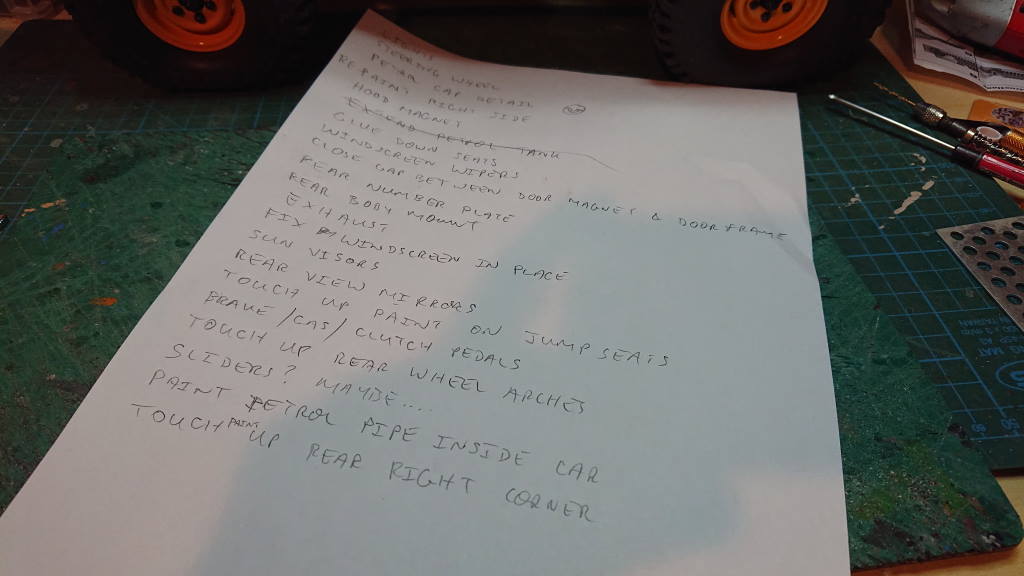 LIGHTS
STEERING WHEEL
PETROL CAP DETAIL
REPAINT RIGHT SIDE
HOOD MAGNET
EXTEND PETROL TANK
GLUE DOWN SEATS
WINDSCREEN WIPERS
CLOSE GAP BETWEEN DOOR MAGNET & DOORFRAME
REAR NUMBER PLATE
REAR BODY MOUNT
EXHAUST
FIX WINDSCREEN IN PLACE
SUN VISORS
REAR VIEW MIRRORS
TOUCH UP PAINT ON JUMPSEATS
BRAKE/GAS/CLUTCH PEDALS
TOUCH UP REAR WHEEL ARCHES
SLIDERS? MAYBE....
PAINT PETROL PIPE INSIDE CAR
TOUCH PAINT UP REAR RIGHT CORNER